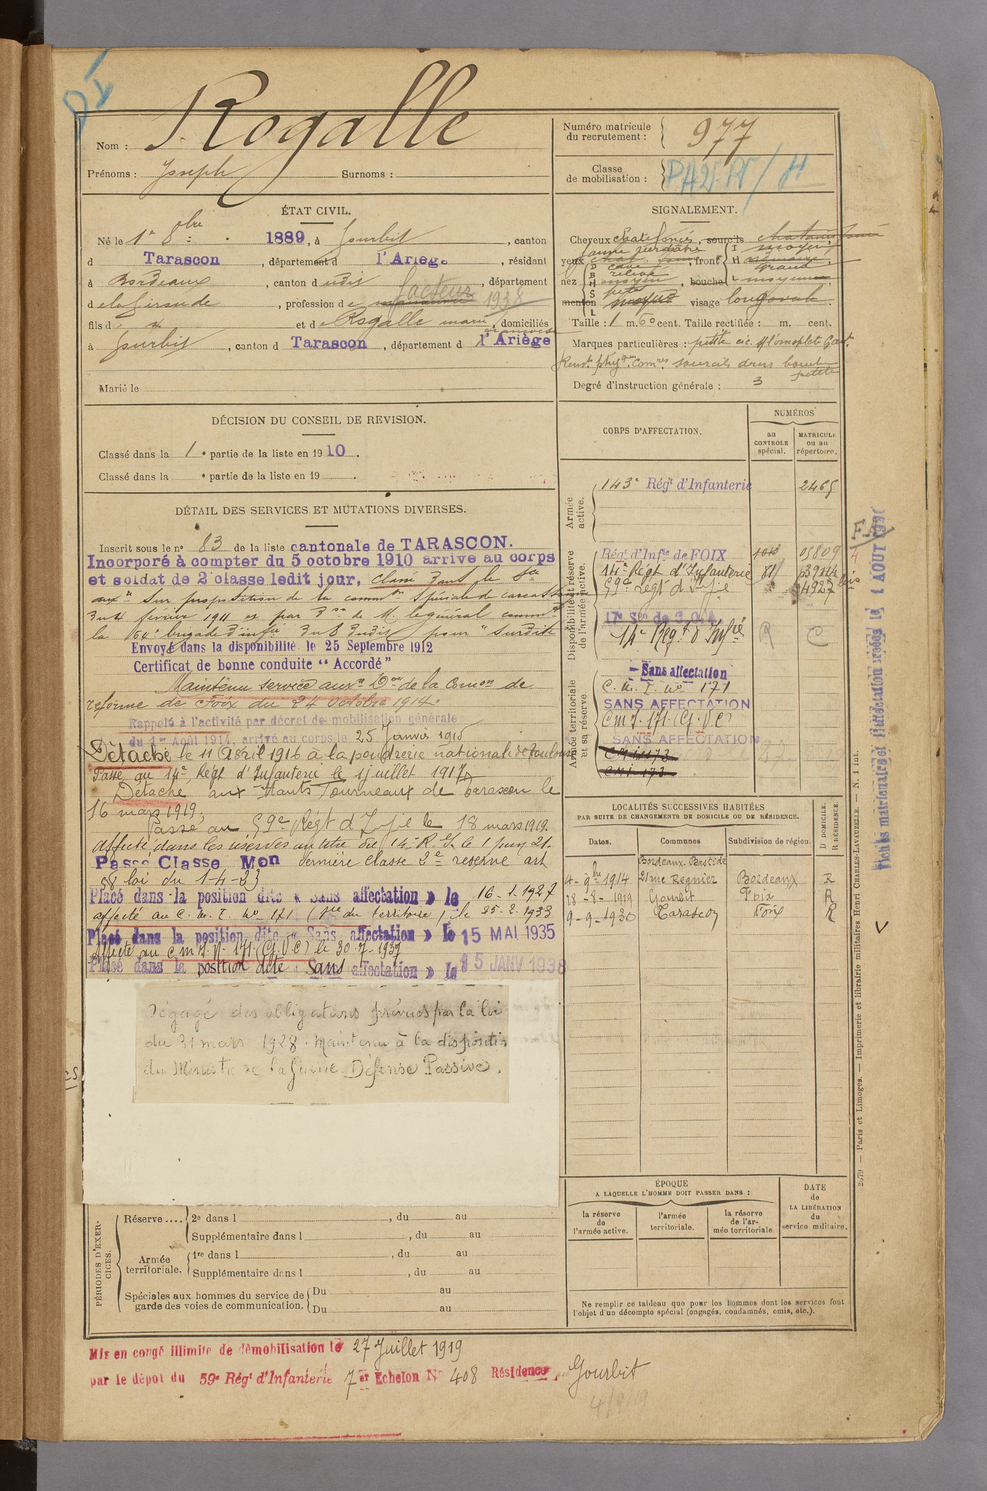 Rogalle
Nom :
Prénoms : Joseph Surnoms :
Numéro matricule du recrutement : 977
Classe de mobilisation :
ÉTAT CIVIL.
Né le 1er 8bre 1889, à Gourbit, canton
d Tarascon, département d l'Ariège, résidant
à Bordeaux, canton d udit, département
d e la Gironde, profession de facteur 1938
fils d et de Rogalle marie, domiciliés
à Gourbit, canton d Tarascon, département d l'Ariège
Marié le
SIGNALEMENT.
Cheveux chat. foncés, sourcils
yeux front
nez bouche
menton visage long ovale
Taille : 1 m. 60 cent. Taille rectifiée : m. cent.
Marques particulières : petite cic.
sourcils drus bouche petite
Degré d'instruction générale : 3
DÉCISION DU CONSEIL DE REVISION.
Classé dans la 1e partie de la liste en 1910.
Classé dans la e partie de la liste en 19
DÉTAIL DES SERVICES ET MUTATIONS DIVERSES.
Inscrit sous le n° 83 de la liste cantonale de TARASCON.
Incorporé à compter du 5 octobre 1910 arrivé au corps
et soldat de 2e classe ledit jour, classé dans le Sce
auxre sur proposition de la common spéciale de carcassonne
du 4 février 1911 et par Don de M. le général commt
la 64e brigade d'infie du 8 dudit pour "surdité"
Envoyé dans la disponibilité le 25 Septembre 1912
Certificat de bonne conduite "Accordé"
Maintenu service auxre Don de la Common de
réforme de Foix du 24 octobre 1914.
Rappelé à l'activité par décret de mobilisation générale
du 1er Août 1914, arrivé au corps le 25 Janvier 1915
Détaché le 11 Avril 1916 à la poudrerie nationale de Toulouse
Passé au 14e Régt d'Infanterie le 1 juillet 1917
Détaché aux Hauts Fourneaux de Tarascon le
16 mars 1919,
Passé au 59e Régt d'Infie le 18 mars 1919.
Affecté dans les réserves au titre du 14e R.I. le 1 juin 21.
Passé Classe Mon dernière classe 2e réserve art
58 loi du 1-4-23
Placé dans la position dite « Sans affectation » le 16-1-1927
affecté au C. M. I. No 171 (Sce du Territoire) le 25.2.1933
Placé dans la position dite « Sans affectation » le 15 MAI 1935
Affecté au C M I. No 171 (G V C) le 30-7-1937
Placé dans la position dite « Sans affectation » le 15 JANV 1938
Dégagé des obligations prévues par la loi
du 31 mars 1928. Maintenu à la disposition
du Ministre de la Guerre Défense Passive.
CORPS D'AFFECTATION.
NUMÉROS
au CONTROLE spécial.
MATRICULE ou au répertoire.
Armée active.
143e Régt d'Infanterie 2465
Disponibilité et réserve de l'armée active.
Régt d'Infie de FOIX 05809
14e Régt d'Infanterie
59e Régt d'Infie
17e Son de C.O.A
14e Régt d'Infie R C
Armée territoriale et sa réserve.
Sans affectation
C. M. I. No 171
SANS AFFECTATION
C m I. 171 (G. V C)
SANS AFFECTATION
LOCALITÉS SUCCESSIVES HABITÉES
PAR SUITE DE CHANGEMENTS DE DOMICILE OU DE RÉSIDENCE.
Dates. Communes Subdivision de région. D DOMICILE. R RÉSIDENCE.
4-9bre 1914 21 rue Régnier Bordeaux R
18-8-1919 Gourbit Foix R
9-9-1930 Tarascon Foix R
ÉPOQUE
A LAQUELLE L'HOMME DOIT PASSER DANS :
la réserve de l'armée active.
l'armée territoriale.
la réserve de l'armée territoriale.
DATE de LA LIBÉRATION du service militaire.
Ne remplir ce tableau que pour les hommes dont les services font
l'objet d'un décompte spécial (engagés, condamnés, omis, etc.).
PÉRIODES D'EXERCICES.
Réserve .... 2e dans l , du au
Supplémentaire dans l , du au
Armée territoriale. 1re dans l , du au
Supplémentaire dans l , du au
Spéciales aux hommes du service de garde des voies de communication. Du au
Du au
Mis en congé illimité de démobilisation le 27 Juillet 1919
par le dépôt du 59e Régt d'Infanterie 7er Echelon No 408 Résidence Gourbit
Paris et Limoges. — Imprimerie et librairie militaires Henri CHARLES-LAVAUZELLE.